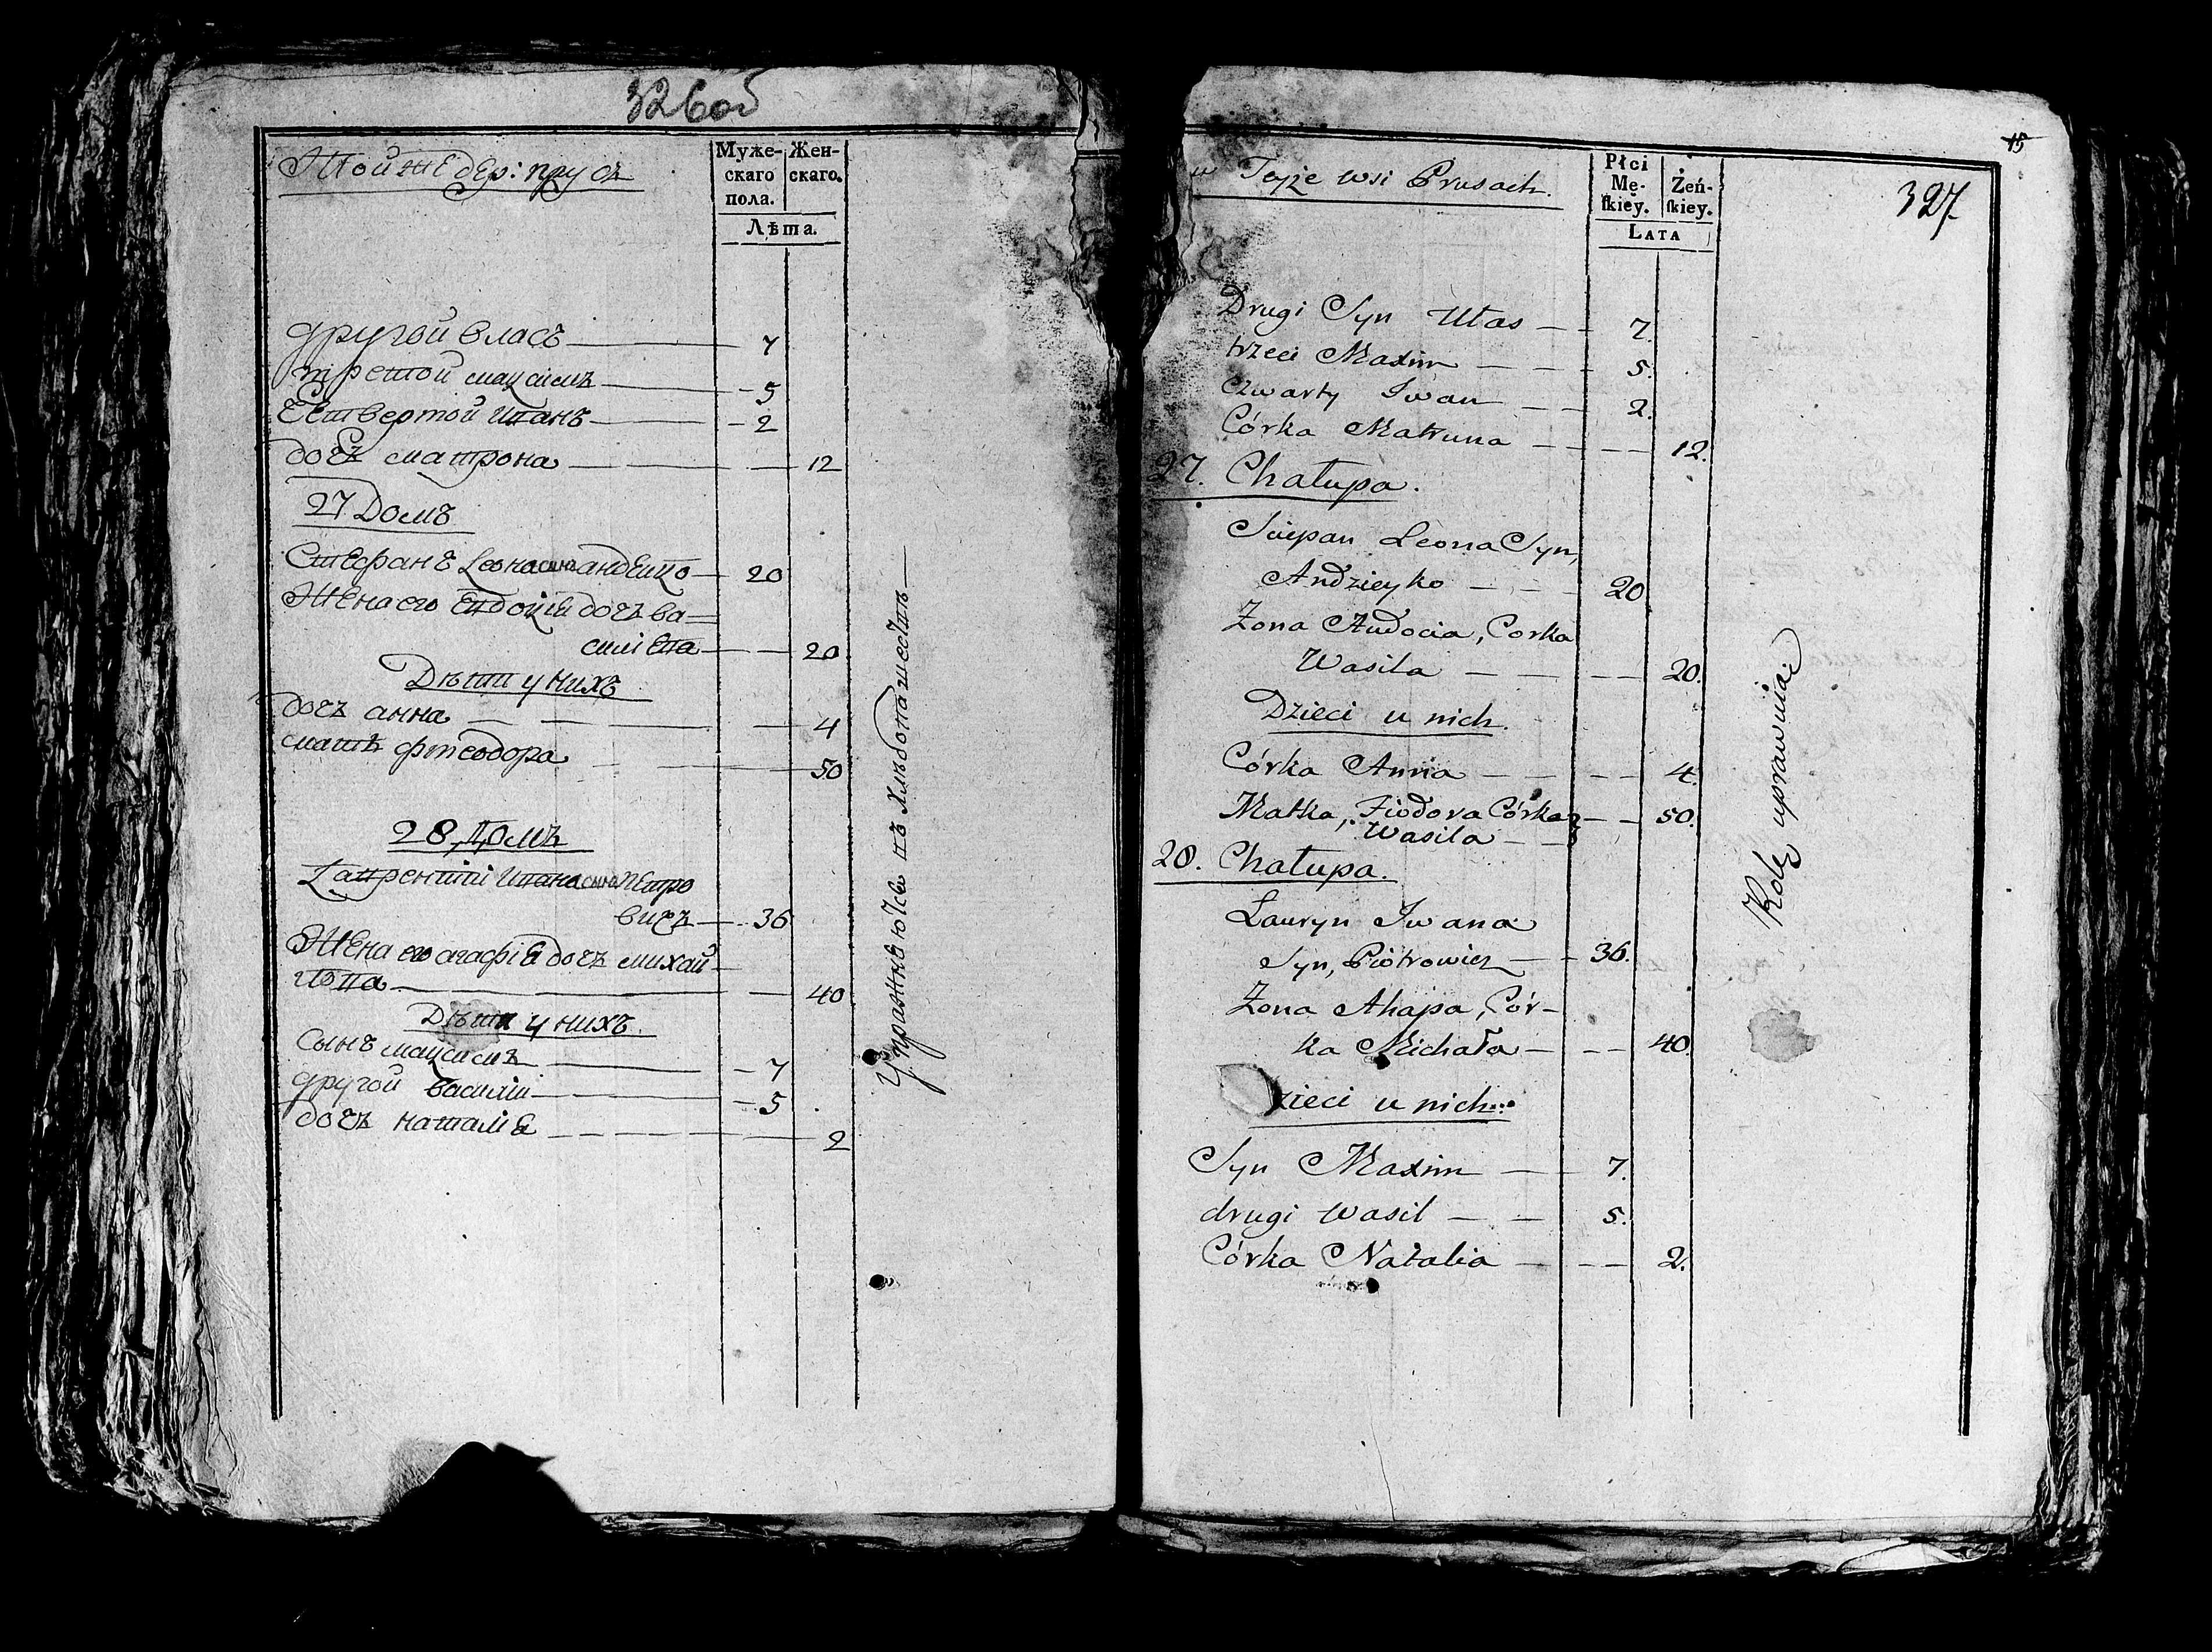 326 об
Той же дер: прусъ
Муже-
скаго
пола.
Жен-
скаго.
Лѣта.
другой власъ — 7
третой максимъ — 5
Четвертой иванъ — 2
дочъ матрона — 12
27 Домъ
Стефанъ Леона сынъ андейко — 20
Жена его Евдокіи дочъ ва=
силіева — 20
Дѣти у нихъ
дочъ анна — 4
мать фтеодора — 50
28 Домъ
Лаврентіи ивана сынъ петро
вичъ — 36
Жена его агафіи дочъ михай
лова — 40
Дѣти у нихъ
Сынъ максимъ — 7
другой василіи — 5
дочъ наталіи — 2
въ Хлѣбопашествѣ
15
327
w Teyże wsi Prusach.
Płci
Mę-
skiey.
Żeń-
skiey.
Lata
Drugi Syn Ułas — 7.
trzeci Maxim — 5.
czwarty Iwan — 2.
Córka Matruna — 12.
27. Chałupa.
Sciepan Leona Syn,
Andzieyko — 20
Zona Audocia, Corka
Wasila — 20.
Dzieci u nich.
Córka Anna — 4.
Matka, Fiodora Córka — 50.
Wasila —
28. Chałupa.
Lauryn Iwana
Syn, Piotrowicz — 36.
Zona Ahapa, Cór-
ka Michała — 40.
Dzieci u nich
Syn Maxim — 7.
drugi Wasil — 5.
Córka Natalia — 2.
Rolę uprawuiać